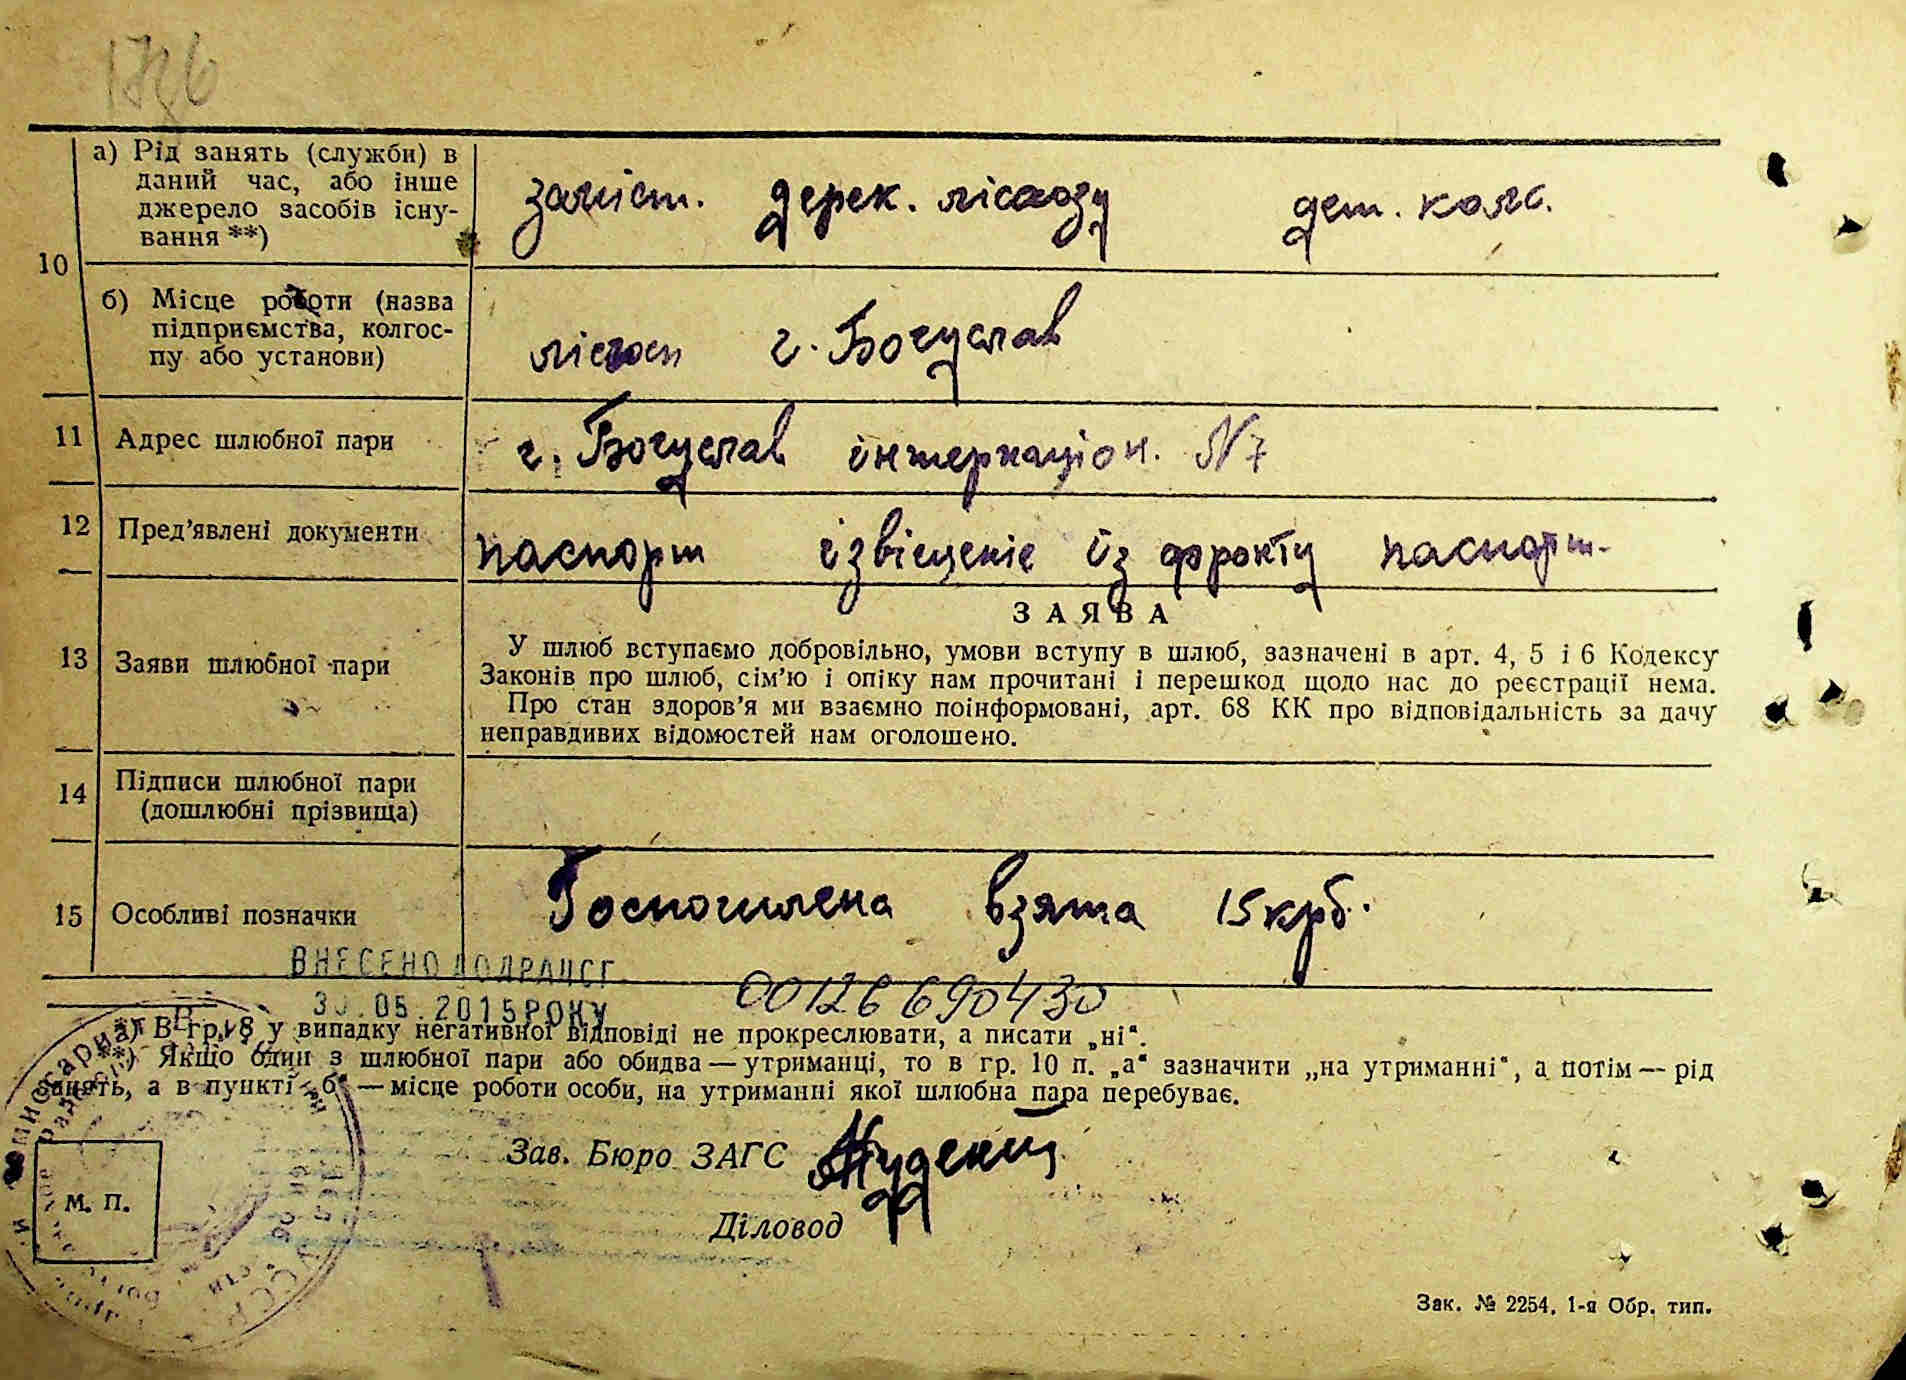 а) Рід занять (служби) в
даний час, або інше
джерело засобів існу-
вання **)
заміст. дерек. лісхозу дет. колс.
10
б) Місце роботи (назва
підприємства, колгос-
пу або установи)
г. Богуслав
11 Адрес шлюбної пари
г. Богуслав інтернаціон. № 7
12 Пред’явлені документи
паспорт ізвіщеніє із фронту паспорт.
13 Заяви шлюбної пари
ЗАЯВА
У шлюб вступаємо добровільно, умови вступу в шлюб, зазначені в арт. 4, 5 і 6 Кодексу
Законів про шлюб, сім’ю і опіку нам прочитані і перешкод щодо нас до реєстрації нема.
Про стан здоров’я ми взаємно поінформовані, арт. 68 КК про відповідальність за дачу
неправдивих відомостей нам оголошено.
14 Підписи шлюбної пари
(дошлюбні прізвища)
15 Особливі позначки
Госпошлена взята 15 крб.
ВНЕСЕНО ДО ДРАЦСГ
30.05.2015 РОКУ
00126690430
*) В гр. 8 у випадку негативної відповіді не прокреслювати, а писати „ні“.
**) Якщо один з шлюбної пари або обидва — утриманці, то в гр. 10 п. „а“ зазначити „на утриманні“, а потім — рід
занять, а в пункті „б“ — місце роботи особи, на утриманні якої шлюбна пара перебуває.
Зав. Бюро ЗАГС
Діловод
М. П.
Зак. № 2254, 1-я Обр. тип.